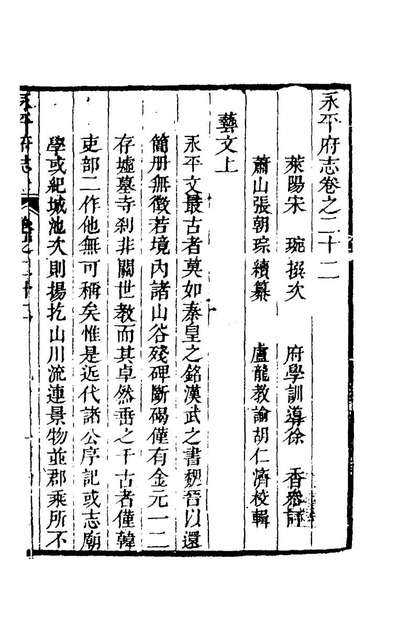 永平府志卷之二十二
萊陽宋　琬撰次　府學訓導徐　香叅評
蕭山張朝琮續纂　盧龍教諭胡仁濟校輯
藝文上
永平文最古者莫如秦皇之銘漢武之書魏晉以還
簡册無徵若境內諸山谷殘碑斷碣僅有金元一二
存墟墓寺刹非關世教而其卓然垂之千古者僅韓
吏部二作他無可稱矣惟是近代諸公序記或志廟
學或紀城池次則揚扢山川流連景物並郡乘所不
永平府志